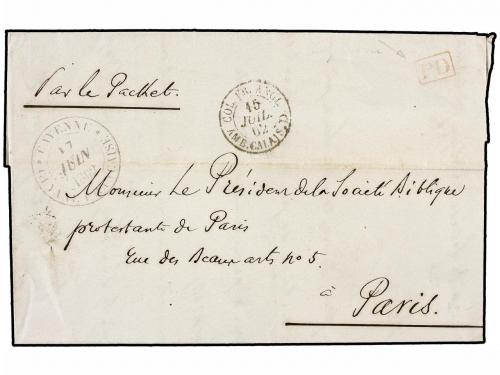 Par le Packet.
PD
COL. FR. ANGL.
15
JUIL.
62
AMB. CALAIS D
CAYENNE
17
JUIN
Monsieur Le Président de la Société Biblique
protestante de Paris
Rue des Beaux arts no 5.
à
Paris.